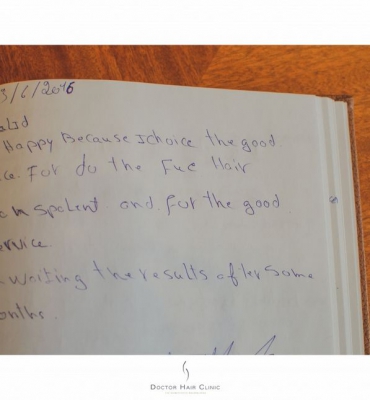 3/6/2016
Happy Because I choice the good
For do the Fue Hair
and for the good
ervice.
waiting the results after some
onths.
DOCTOR HAIR CLINIC